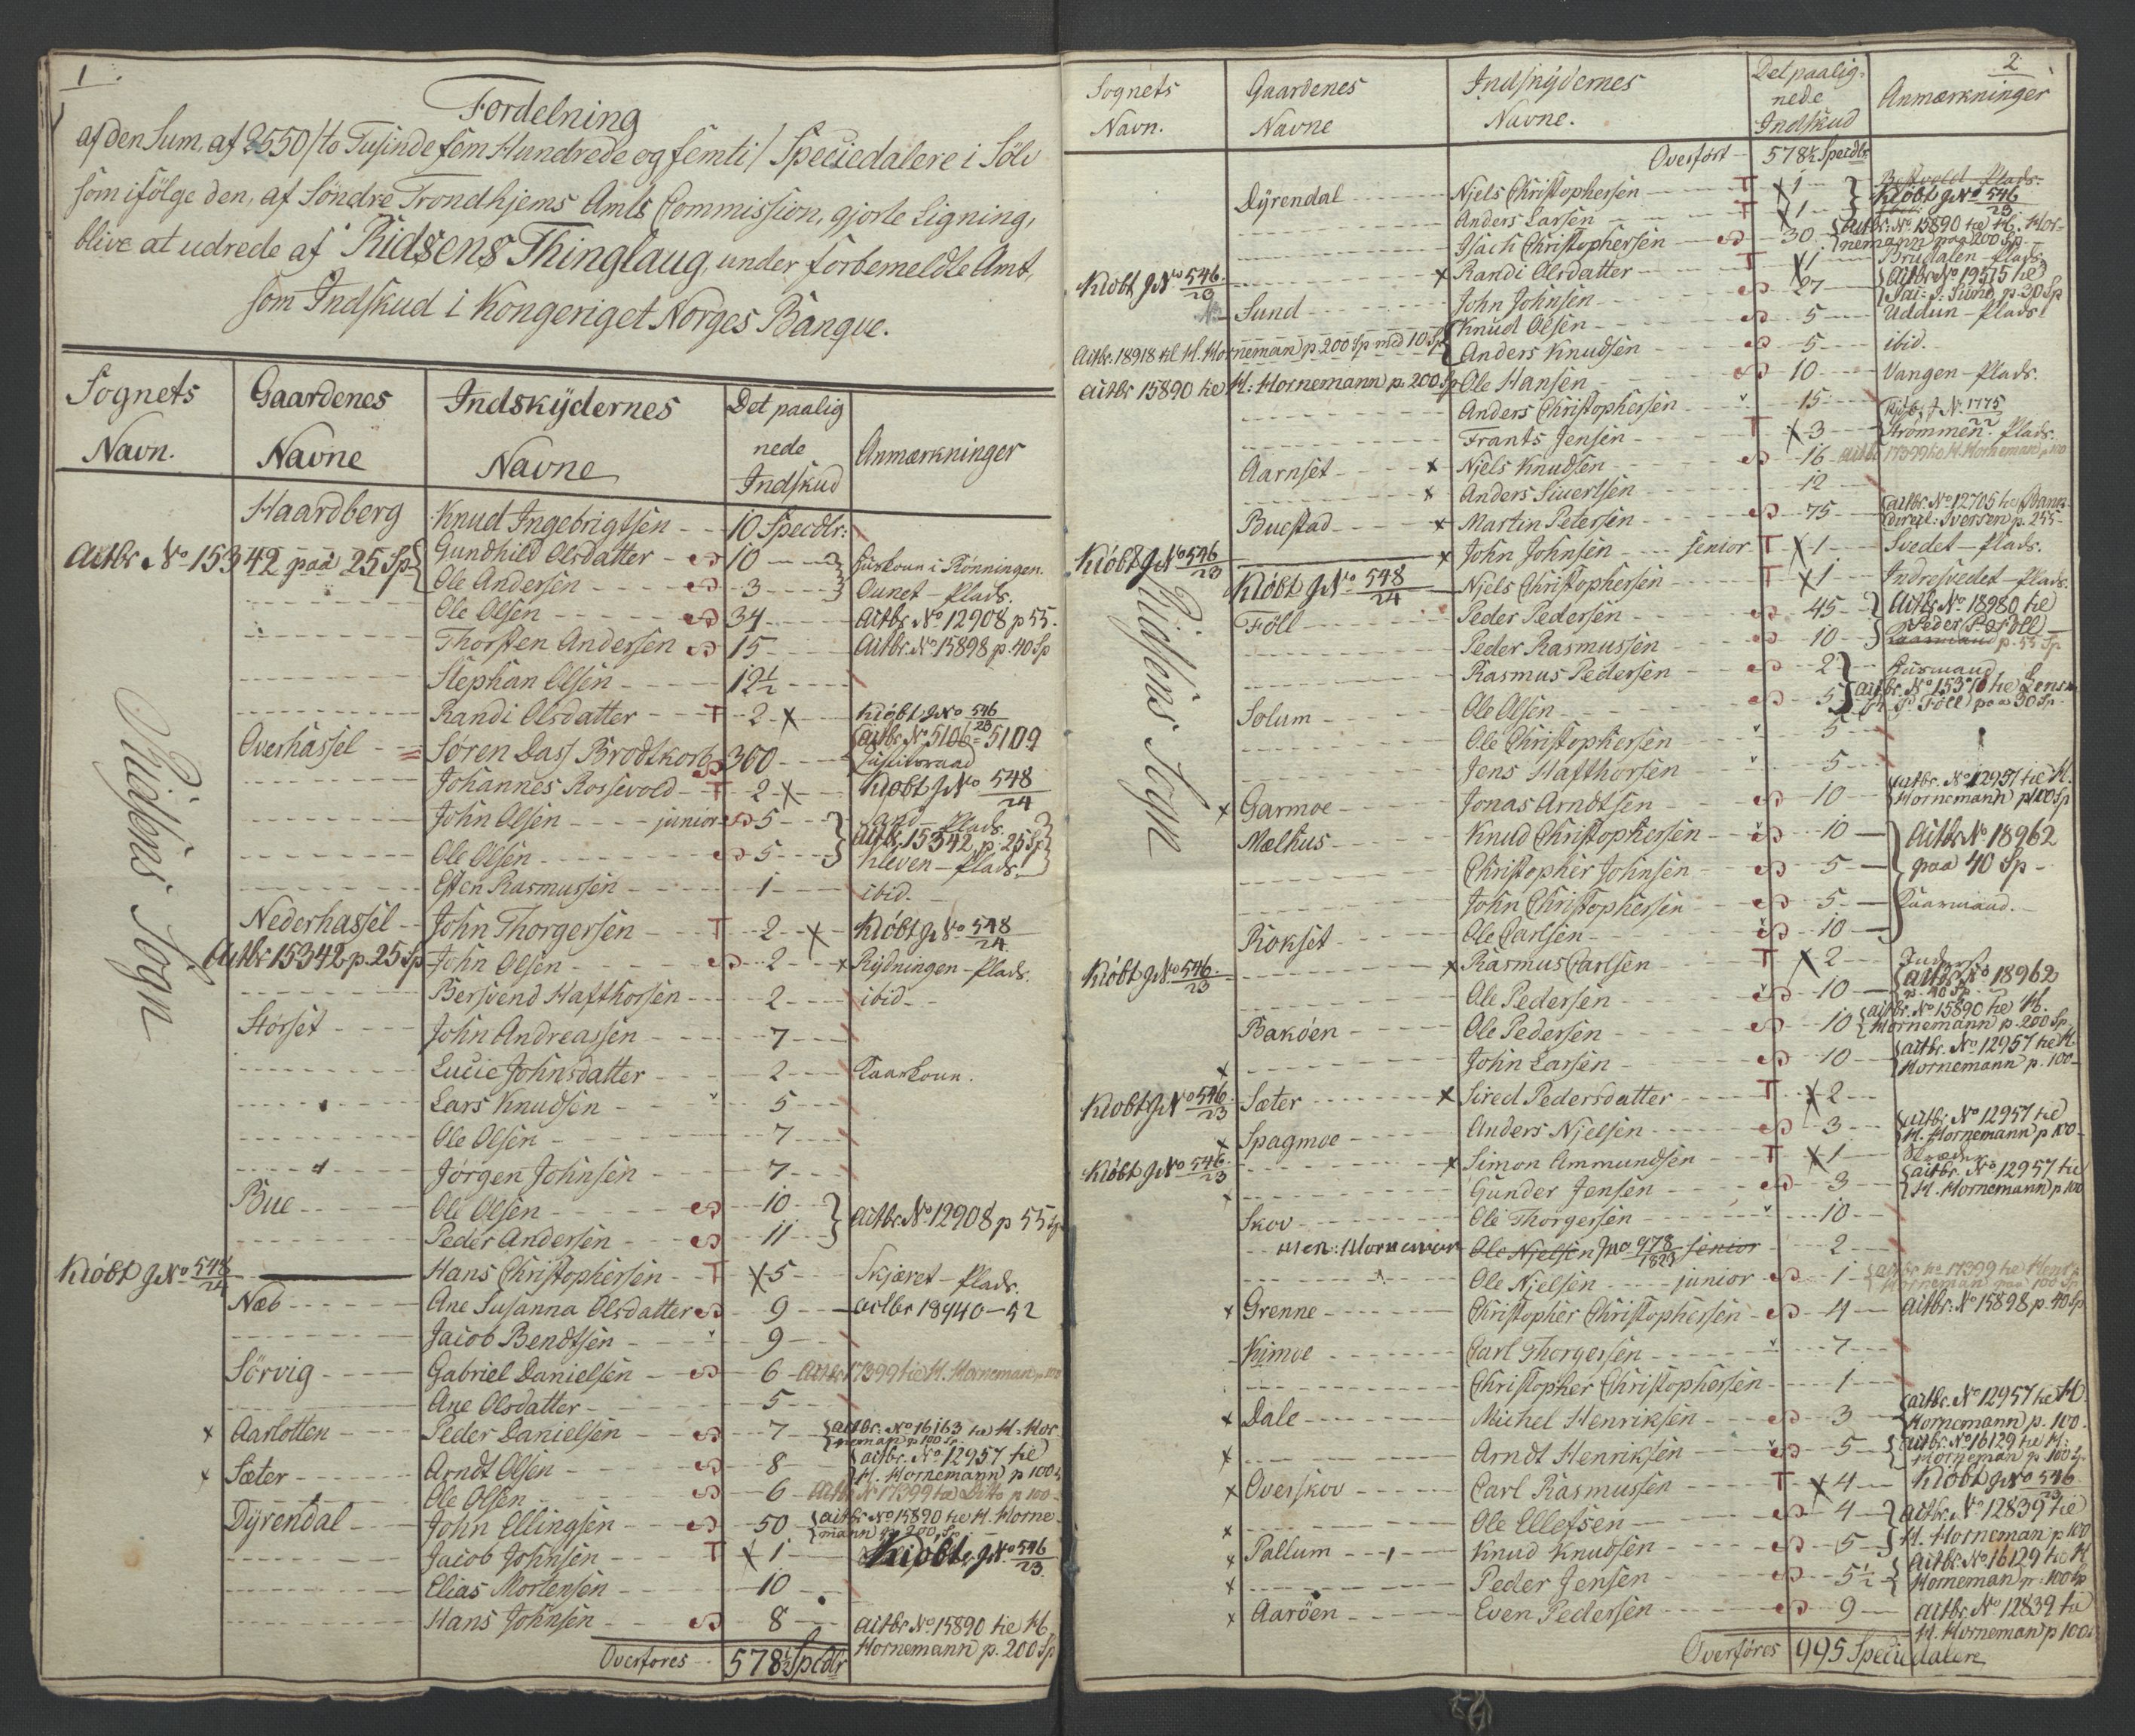 1
Fordelning
af den Sum, af 2550 /to Tusinde fem Hundrede og femti/ Speciedalere i Sölv
som ifölge den, af Söndre Trondhjems Amts Commission, gjorte Ligning,
blive at udrede af Ridsens Thinglaug, under forbemeldte Amt,
som Indskud i Kongeriget Norges Banque.
Sognets Navn. Gaardenes Navne Indskydernes Navne Det paalignede Indskud Anmærkninger
Ridsens Sogn
Haardberg Knud Ingebrigtsen 10 Specdlr:
Actbr No 15342 paa 25 Sp Gundhild Olsdatter 10 Huuskoun i Rönningen.
Ole Andersen 3 Aunet - Plads.
Ole Olsen 34 Actbr No 12908 p 55.
Thorsten Andersen 15 Actbr. No 15898 p. 40 Sp
Stephan Olsen 12½
Randi Olsdatter T 2 x Kiöbt J No 546/23
Overhassel Sören Dass Brodtkorb 360 actbr. No 5106 = 5109 Justitsraad
Johannes Rossevold T 2 x Kiöbt J No 548/24
John Olsen junior 5 Sand - Plads.
Ole Olsen 5 Actbr. 15342 p. 25 Sp Kleven - Plads.
Esten Rasmussen 1 ibid.
Nederhassel John Thorgersen T 2 x Kiöbt J No 548/24
Actbr 15342 p. 25 Sp John Olsen 2 x Rydningen - Plads.
Bersvend Hafthorsen 2 ibid
Störset John Andreassen 7
Lucie Johnsdatter 2 Kaarkoun.
Lars Knudsen 5
Ole Olsen 7
Jörgen Johnsen 7
Bue Ole Olsen 10
Peder Andersen 11 actbr. No 12908 p 55 Sp
Kiöbt J No 548/24 Hans Christophersen T x 5 Skjæret - Plads.
Næb Ane Susanna Olsdatter 9 actbr 18940 - 52
Jacob Bendtsen 9
Sörvig Gabriel Danielsen 6 Actbr 17399 tie H. Horneman p 100
Ane Olsdatter 5
x Aarlotten Peder Danielsen 7 actbr. No 16163 tie H. Horneman p 100 Sp.
x Sæter Arndt Olsen 8 actbr. No 12957 tie H. Hornemann p 100
Ole Olsen 6 Actbr No 17399 tie Ditto p 100
Dyrendal John Ellingsen 50 actbr No 15890 tie H. Hornemann p. 200 Sp
Jacob Johnsen T x 1 Kiöbt J No 546/23.
Elias Mortensen 10
Hans Johnsen 8 actbr No 15890 tie H. Hornemann p. 200 Sp
Overföres 578½ Spcdlr
2
Sognets Navn. Gaardenes Navne Indskydernes Navne. Det paalignede Indskud Anmærkninger
Ridsens Sogn
Overfört 578½ Specdlr.
Dyrendal Niels Christophersen T x 1 Plads.
Anders Larsen T x 1 Kiöbt J No 546/23
Isach Christophersen 30 Actbr. No 15890 tie H. Hornemann paa 200 Sp.
Kiöbt J No 546/23 x Randi Olsdatter T x 1 Brudalen - Plads.
Sund John Johnsen 27 Actbr No 19515 tie P. 30 Sp
Knud Olsen 5 Uddun - Plads
Actbr. 18918 til H. Hornemann p. 200 Sp med 10 Sp Anders Knudsen 5 ibid.
actbr 15890 tie H: Hornemann p. 200 Sp Ole Hansen 10 Vangen - Plads.
Anders Christophersen 15
Frants Jensen T x 3 Kiöbt J No 1775/22 Strömmen - Plads.
Aarnset x Niels Knudsen 16 actbr 17399 tie H. Horneman p 100
x Anders Siuertsen 12
Buestad x Martin Petersen 75 actbr. No 12705 tie Banc direct. Iversen p. 255
Kiöbt J No 546/23 x John Johnsen senior T x 1 Svedet - Plads.
Kiöbt J No 548/24 Niels Christophersen T x 1 Indresvedet - Plads.
Föll Peder Pedersen 45 Actbr No 18980 tie Peder P. Föll
Peder Rasmussen 10 p. 55 Sp
Rasmus Pedersen 2 Huusmand
Solum Ole Olsen 5 actbr. No 15370 tie Lensm. P. Föll paa 30 Sp
Ole Christophersen 5
Jens Hafthorsen 5
x Garmoe Jonas Arndtsen 10 actbr. No 12957 tie H. Hornemann p 100 Sp
Mælhus Knud Christophersen 10 Actbr No 18962
Christopher Johnsen 5 paa 40 Sp
John Christophersen 5 Kaarmand.
Rokset Ole Carlsen 10
Kiöbt J No 546/23 x Rasmus Carlsen T x 2
Ole Pedersen 10 actbr No 18962 p. 40 Sp
Baköen Ole Pedersen 10 actbr. No 15890 tie H. Hornemann p. 200 Sp.
x John Larsen 10 actbr. No 12957 tie H. Hornemann p. 100
Kiöbt J No 546/23 Sæter x Sired Pedersdatter T x 2
x Spagmoe Anders Njelsen 3 actbr No 12957 tie H. Hornemann p 100
Kiöbt J No 546/23 x Simon Ammundsen T x 1
x Gunder Jensen 3 actbr. No 12957 tie H. Hornemann p 100
Skov Ole Thorgersen 10
Ole Njelsen J No 978/1823 senior 2
Ole Njelsen junior 1 actbr No 17399 tie Horneman paa 100 Sp
x Grenne Christopher Christophersen 4 actbr: No 15898 p. 40 Sp
Kimoe Carl Thorgersen 7
Christopher Christophersen 1
x Dale Michel Henriksen 3 actbr. No 12957 tie H. Hornemann p. 100
x Arndt Henriksen 5 actbr. No 16129 tie H. Horneman p 100 Sp.
x Overskov Carl Rasmussen T x 4 Kiöbt J No 546/23
x Ole Ellefsen 4 actbr. No 12839 tie
x Pallum Knud Knudsen 5 H. Horneman p 100
x Peder Jensen 5½ Actbr. No 16129 tie H Horneman p. 100 Sp
x Aaröen Even Pedersen 9 actbr. No 12839 tie H. Horneman p 100
Overföres 995 Speciedalere